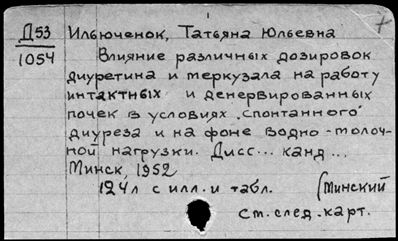 Д53 Ильюченок, Татьяна Юльевна
1054 Влияние различных дозировок
диуретина и меркузала на работу
интактных и денервированных
почек в условиях "спонтанного"
диуреза и на фоне водно-молоч-
ной нагрузки. Дисс... канд...
Минск, 1952
124л с илл. и табл. (Минский
См. след. карт.